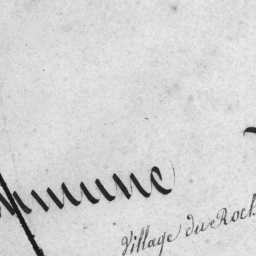 mmune
Village du Roch